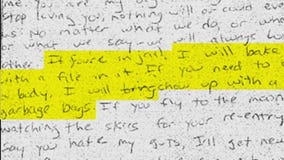 you are my
stop loving you, nothing will or could ever
us. No matter what we do or
or what we say, we will always
If you're in jail, I will bake
with a file in it. If you need to
a body, I will bring show up with a
garbage bags. If you fly to the moon
watching the skies for your re-entry
say you hate my guts, I'll get new